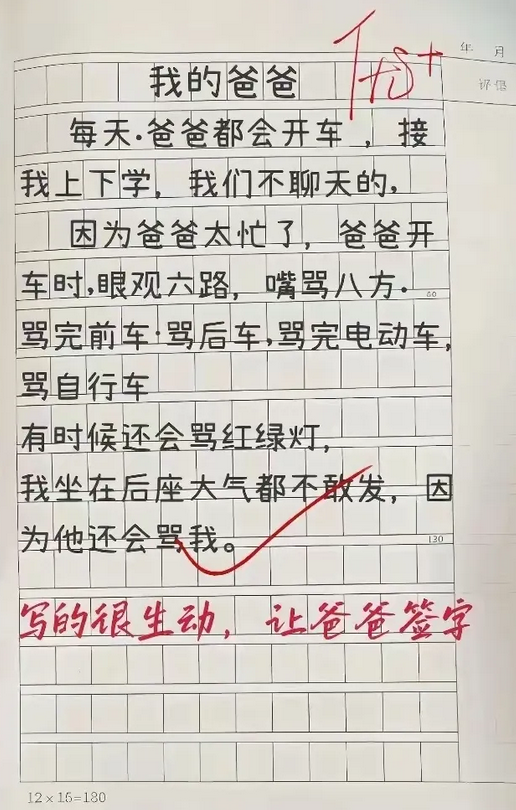 优+
年 月
我的爸爸
每天.爸爸都会开车，接
我上下学，我们不聊天的，
因为爸爸太忙了，爸爸开
车时,眼观六路，嘴骂八方.
60
骂完前车·骂后车,骂完电动车,
骂自行车
有时候还会骂红绿灯,
我坐在后座大气都不敢发，因
为他还会骂我。
130
写的很生动，让爸爸签字
12×15=180